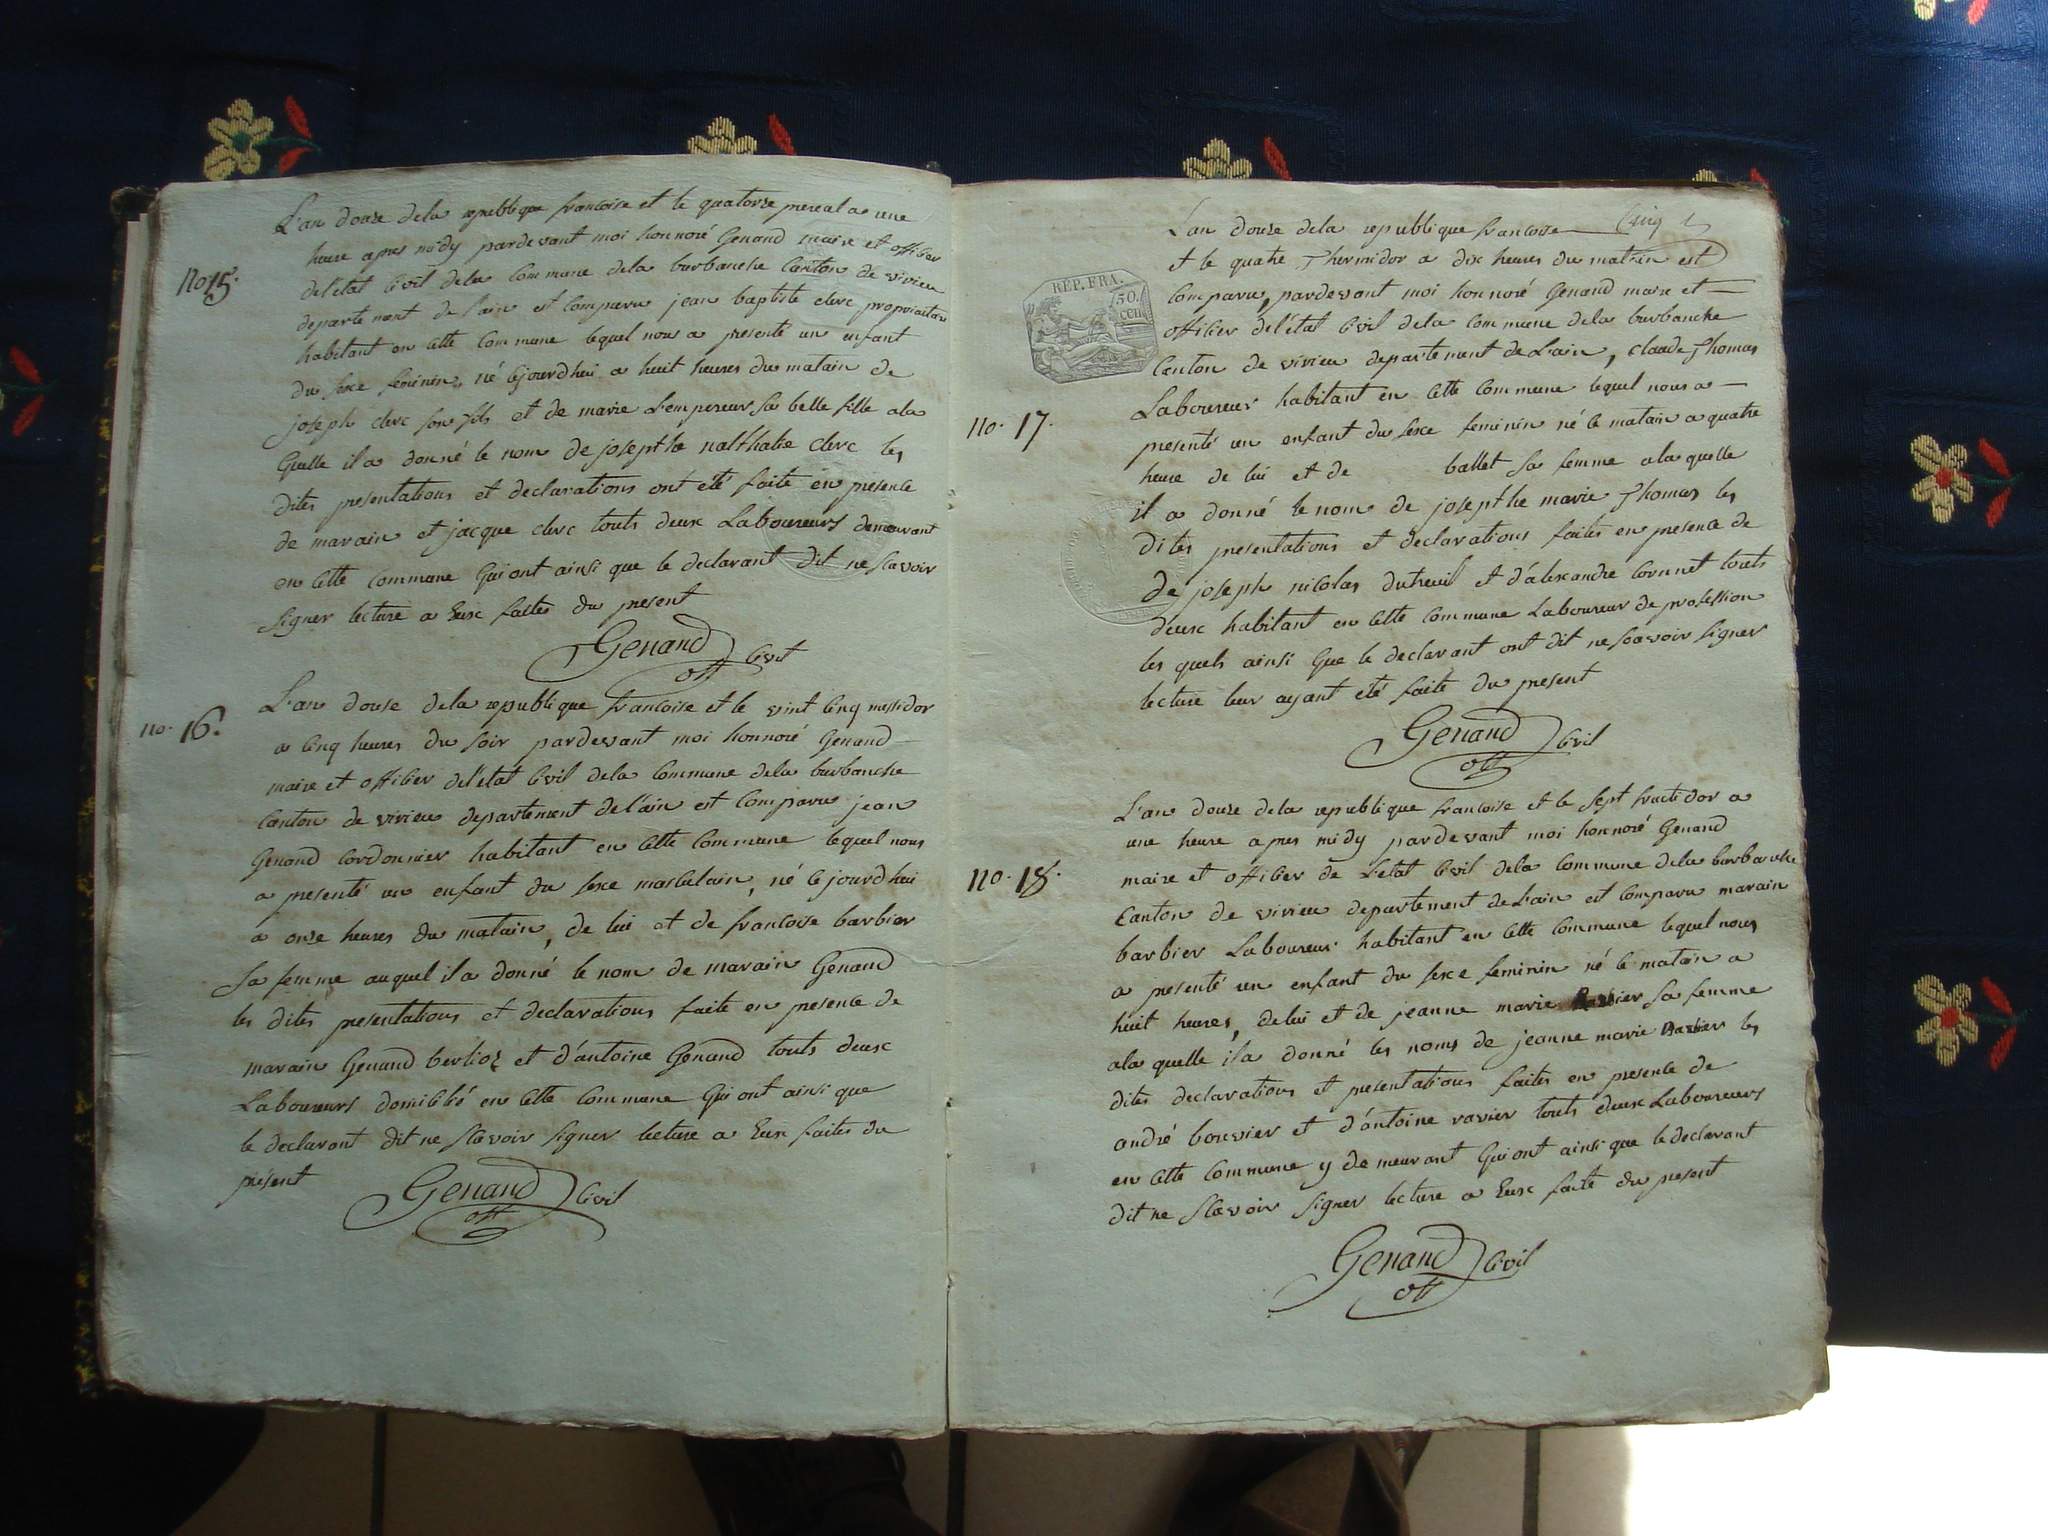 L'an douze dela republique francoise et le quatorze prereal a une
heure apres midy pardevant moi honnoré Genand maire et officier
del'etat Civil dela Commune dela burbanche Canton de virieu
departement de l'ain est comparu jean baptiste clerc propriaitaire
habitant en Cette Commune lequel nous a presenté un enfant
du sexe feminin, né cejourdhui a huit heures du matain de
joseph clerc son fils et de marie L'empereur sa belle fille ala
Quelle il a donné le nom de josepthe nathalie clerc les
dites presentations et declarations ont été faite en presence
de marain et jacque clerc touts deux Laboureurs demeurant
en Cette Commune Qui ont ainsi que le declarant dit ne scavoir
signer lecture a Eux faites du present
Genand
off Civil
no 15.
L'an douse dela republique francoise et le vint Cinq messidor
a Cinq heures du soir pardevant moi honnoré Genand
maire et officier del'etat Civil dela Commune dela burbanche
Canton de virieu departement de l'ain est Comparu jean
Genand Cordonnier habitant en Cette Commune lequel nous
a presenté un enfant du sexe masculain, né cejourdhui
a onze heures du matain, de lui et de francoise barbier
sa femme auquel il a donné le nom de marain Genand
les dites presentations et declarations faite en presence de
marain Genand berlioz et d'antoine Genand touts deux
Laboureurs domicilié en Cette Commune Qui ont ainsi que
le declarant dit ne scavoir signer lecture a Eux faites du
présent
Genand
off Civil
no. 16.
L'an douze dela republique francoise Cinq
et le quatre Thermidor a dix heures du matin est
Comparu, pardevant moi honnoré Genand maire et
officier del'état Civil dela Commune dela burbanche
Canton de virieu departement de L'ain, claude Thomas
Laboureur habitant en Cette Commune lequel nous a
presenté un enfant du sexe feminin né ce matain a quatre
heure de lui et de ballet sa femme ala quelle
il a donné le nom de josepthe marie Thomas les
dites presentations et declarations faites en presence de
de joseph nicolas dutreuil et d'alexandre Cornnet touts
deux habitant en Cette Commune Laboureur de profession
les quels ainsi Que le declarant ont dit ne scavoir signer
lecture leur ayant été faite du present
Genand
off Civil
REP. FRA.
50.
CEN
no. 17.
L'an douze dela republique francoise et le sept fructidor a
une heure apres midy pardevant moi honnoré Genand
maire et officier de L'etat Civil dela Commune dela burbanche
Canton de virieu departement de L'ain est Comparu marain
barbier Laboureur habitant en Cette Commune lequel nous
a presenté un enfant du sexe feminin né ce matain a
huit heures, de lui et de jeanne marie sa femme
ala quelle il a donné les noms de jeanne marie Barbier les
dites declarations et presentations faites en presence de
andré bouvier et d'antoine ravier touts deux Laboureurs
en Cette Commune y demeurant Qui ont ainsi que le declarant
dit ne scavoir signer lecture a Eux faite du present
Genand
off Civil
no. 18.